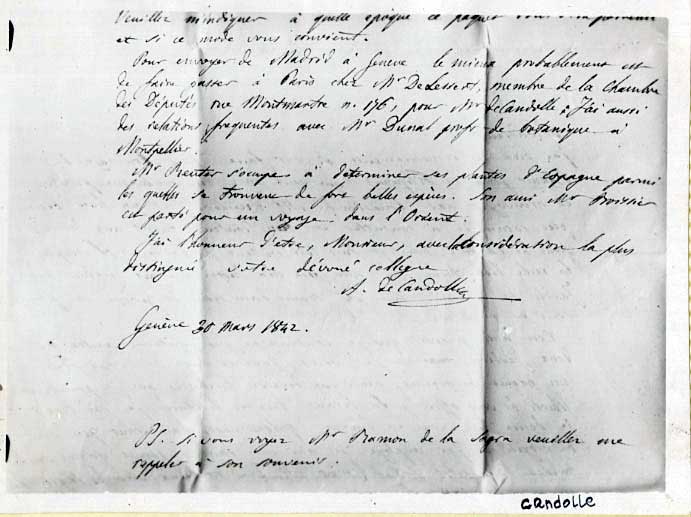 Veuillez m'indiquer à quelle époque ce paquet vous
et si ce mode vous convient.
Pour envoyer de Madrid à Genève le mieux probablement est
de faire passer à Paris chez Mr DeLessert, membre de la Chambre
des Députés rue Montmartre n. 176, pour Mr deCandolle ; J'ai aussi
des relations frequentes avec Mr Dunal profr de botanique à
Montpellier.
Mr Reuter s'occupe à déterminer ses plantes d'Espagne parmi
les quelles se trouvent de fort belles espèces. Son ami Mr Boissier
est parti pour un voyage dans l'Orient.
J'ai l'honneur d'etre, Monsieur, avec la considération la plus
distinguée votre dévoué collegue
A. DeCandolle
Genève 30 Mars 1842.
PS. si vous voyez Mr Ramon de la Sagra veuillez me
rappeler à son souvenir.
CANDOLLE